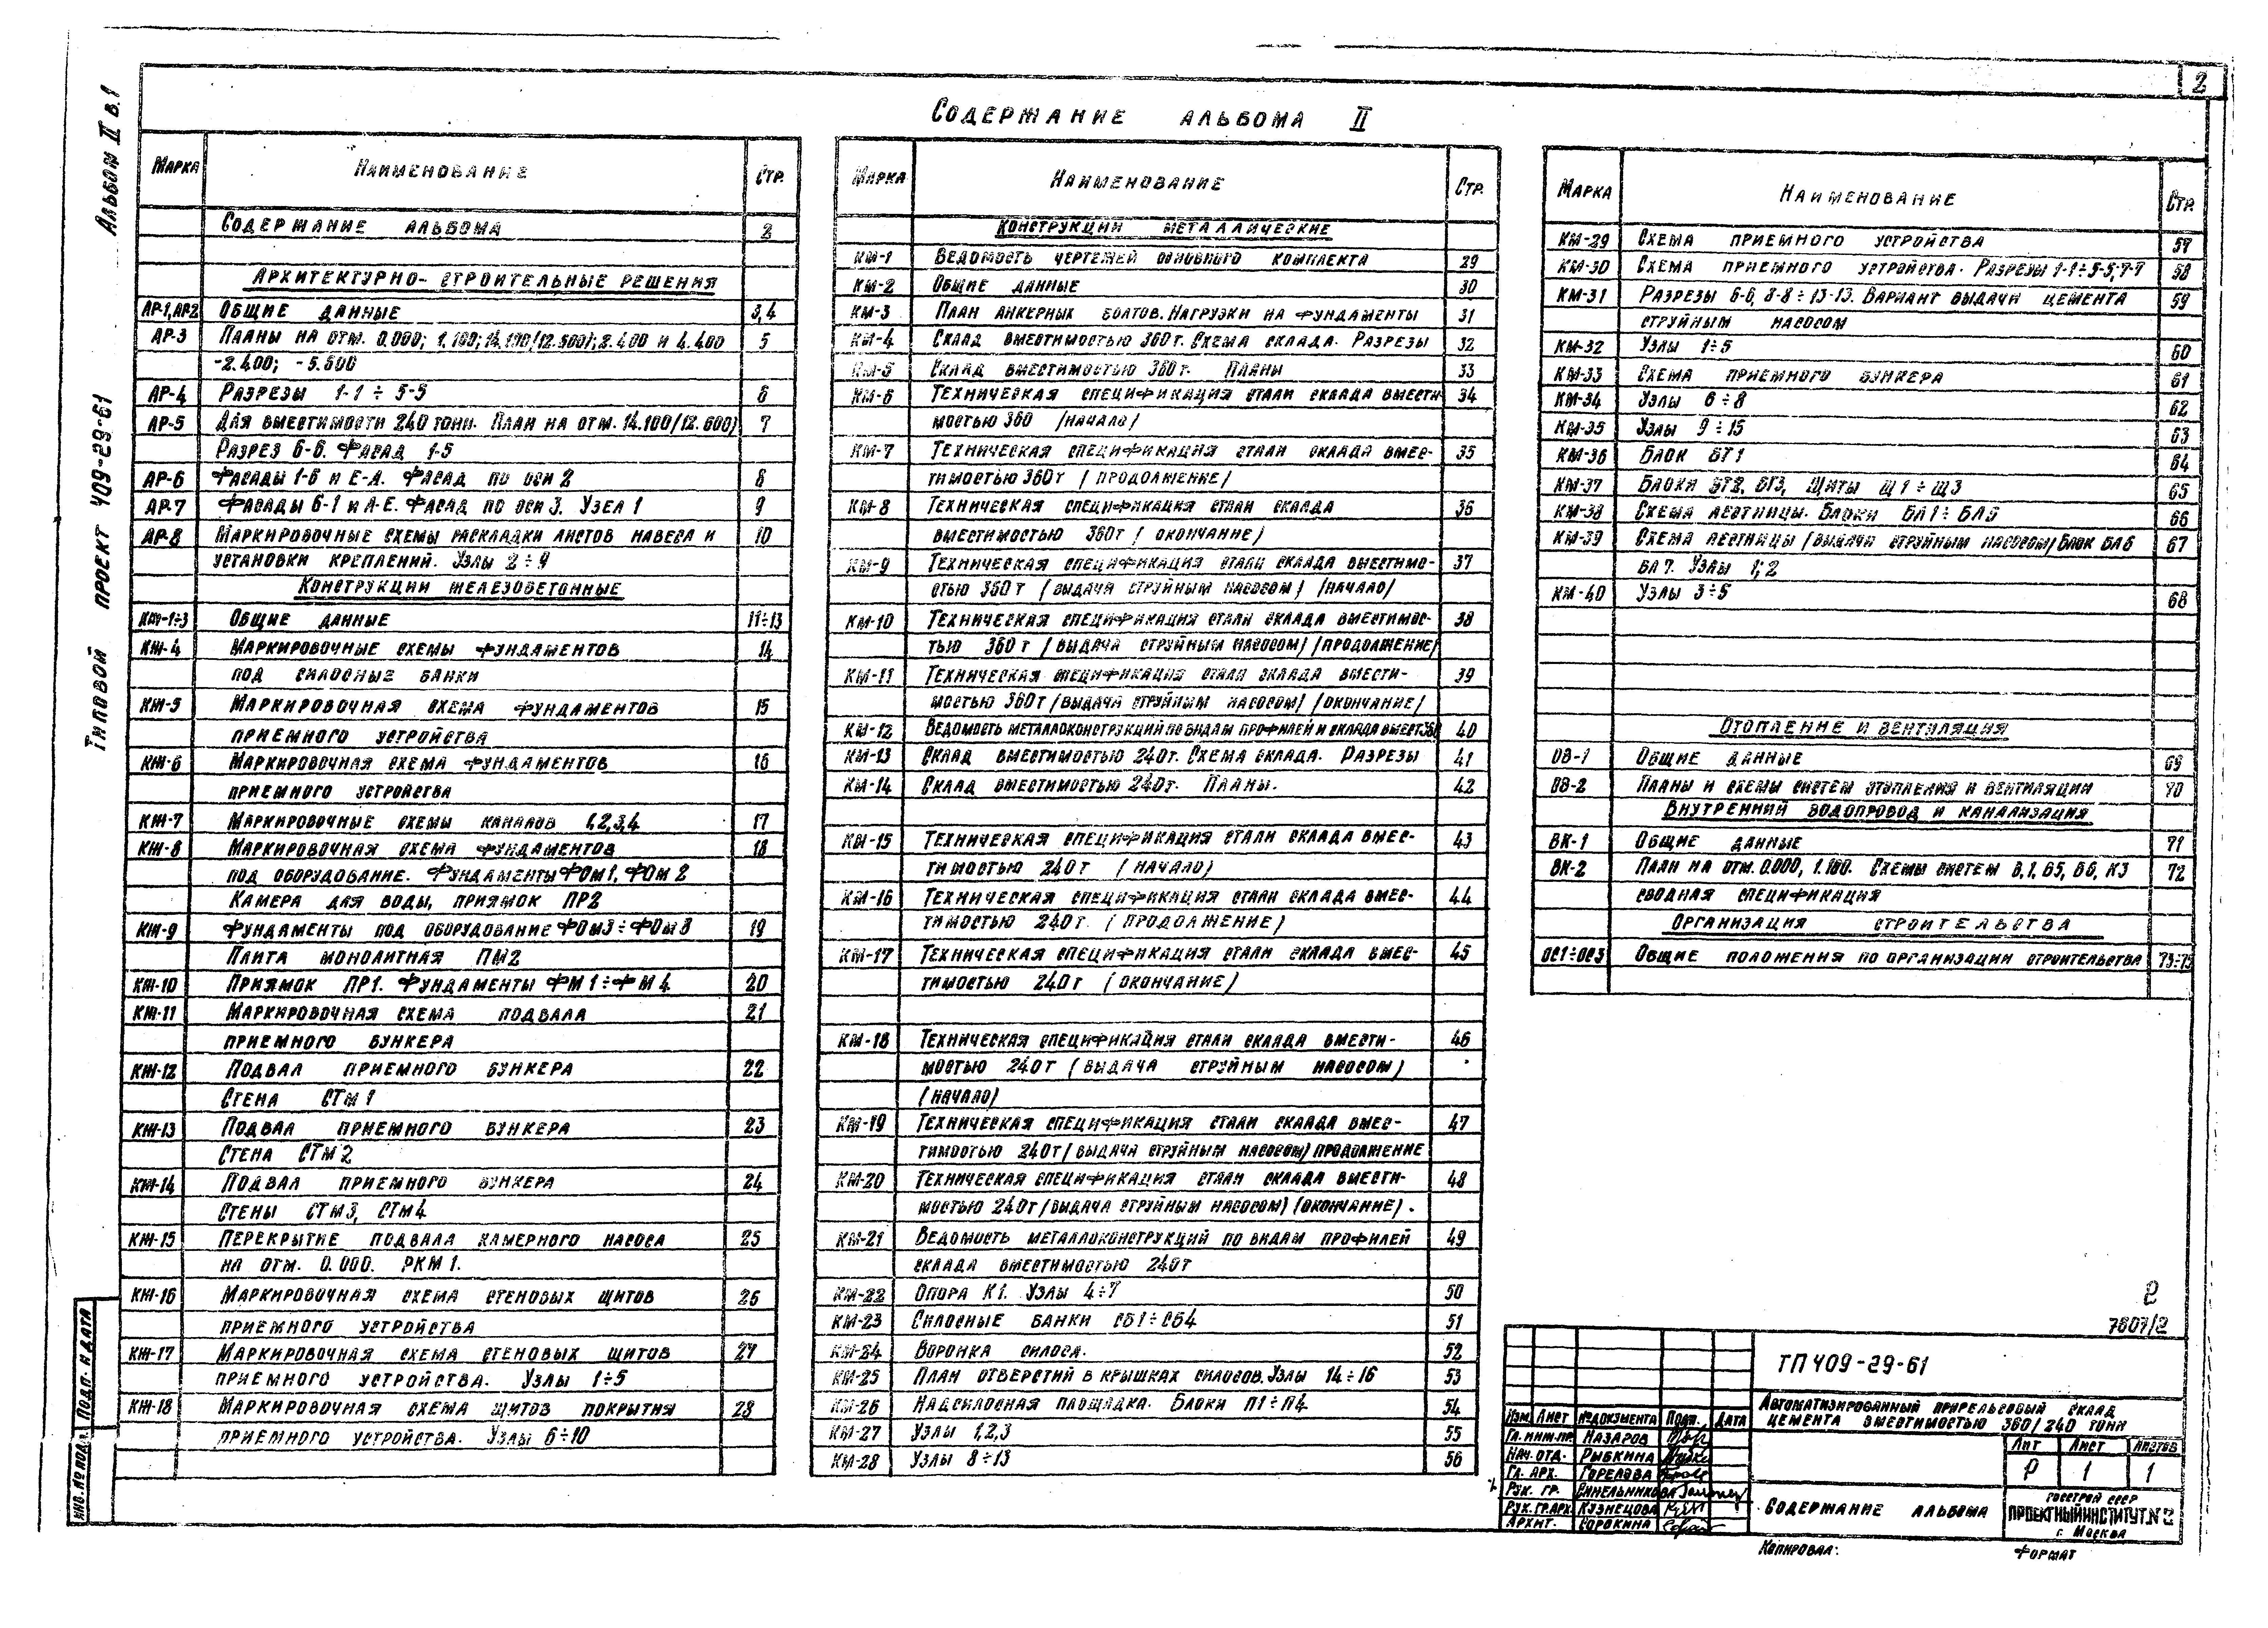 2
Содержание альбома II
Альбом II в.1
Типовой проект 409-29-61
Марка Наименование Стр.
Содержание альбома 2
Архитектурно-строительные решения
АР-1, АР2 Общие данные 3,4
АР-3 Планы на отм. 0.000; 1.100; 14.100/12.500/; 2.400 и 4.400 5
-2.400; -5.600
АР-4 Разрезы 1-1 ÷ 5-5 6
АР-5 Для вместимости 240 тонн. План на отм. 14.100/12.600/ 7
Разрез 6-6. Фасад 1-5
АР-6 Фасады 1-6 и Е-А. Фасад по оси 2 8
АР-7 Фасады 6-1 и А-Е. Фасад по оси 3. Узел 1 9
АР-8 Маркировочные схемы раскладки листов навеса и 10
установки креплений. Узлы 2÷9
Конструкции железобетонные
КЖ-1÷3 Общие данные 11÷13
КЖ-4 Маркировочные схемы фундаментов 14
под силосные банки
КЖ-5 Маркировочная схема фундаментов 15
приемного устройства
КЖ-6 Маркировочная схема фундаментов 16
приемного устройства
КЖ-7 Маркировочные схемы каналов 1,2,3,4 17
КЖ-8 Маркировочная схема фундаментов 18
под оборудование. Фундаменты ФОм1, ФОм2
Камера для воды, приямок ПР2
КЖ-9 Фундаменты под оборудование ФОм3÷ФОм8 19
Плита монолитная ПМ2
КЖ-10 Приямок ПР1. Фундаменты ФМ1÷ФМ4 20
КЖ-11 Маркировочная схема подвала 21
приемного бункера
КЖ-12 Подвал приемного бункера 22
Стена СТм1
КЖ-13 Подвал приемного бункера 23
Стена СТм2
КЖ-14 Подвал приемного бункера 24
Стены СТм3, СТм4
КЖ-15 Перекрытие подвала камерного насоса 25
на отм. 0.000. РКМ1.
КЖ-16 Маркировочная схема стеновых щитов 26
приемного устройства
КЖ-17 Маркировочная схема стеновых щитов 27
приемного устройства. Узлы 1÷5
КЖ-18 Маркировочная схема щитов покрытия 28
приемного устройства. Узлы 6÷10
Марка Наименование Стр.
Конструкции металлические
КМ-1 Ведомость чертежей основного комплекта 29
КМ-2 Общие данные 30
КМ-3 План анкерных болтов. Нагрузки на фундаменты 31
КМ-4 Склад вместимостью 360т. Схема склада. Разрезы 32
КМ-5 Склад вместимостью 360т. Планы 33
КМ-6 Техническая спецификация стали склада вмести 34
мостью 360 /начало/
КМ-7 Техническая спецификация стали склада вмес- 35
тимостью 360т /продолжение/
КМ-8 Техническая спецификация стали склада 36
вместимостью 360т /окончание/
КМ-9 Техническая спецификация стали склада вместимо- 37
стью 360т /выдача струйным насосом/ /начало/
КМ-10 Техническая спецификация стали склада вместимос- 38
тью 360т /выдача струйным насосом/ /продолжение/
КМ-11 Техническая спецификация стали склада вмести- 39
мостью 360т /выдача струйным насосом/ /окончание/
КМ-12 Ведомость металлоконструкций по видам профилей и склада вмест.360 40
КМ-13 Склад вместимостью 240т. Схема склада. Разрезы 41
КМ-14 Склад вместимостью 240т. Планы. 42
КМ-15 Техническая спецификация стали склада вмес- 43
тимостью 240т (начало)
КМ-16 Техническая спецификация стали склада вмес- 44
тимостью 240т. (продолжение)
КМ-17 Техническая спецификация стали склада вмес- 45
тимостью 240т (окончание)
КМ-18 Техническая спецификация стали склада вмести- 46
мостью 240т (выдача струйным насосом)
(начало)
КМ-19 Техническая спецификация стали склада вмес- 47
тимостью 240т/выдача струйным насосом/продолжение
КМ-20 Техническая спецификация стали склада вмести- 48
мостью 240т/выдача струйным насосом) (окончание).
КМ-21 Ведомость металлоконструкций по видам профилей 49
склада вместимостью 240т
КМ-22 Опора К1. Узлы 4÷7 50
КМ-23 Силосные банки СБ1÷СБ4 51
КМ-24 Воронка силоса. 52
КМ-25 План отверстий в крышках силосов. Узлы 14÷16 53
КМ-26 Надсилосная площадка. Блоки П1÷П4 54
КМ-27 Узлы 1,2,3 55
КМ-28 Узлы 8÷13 56
Марка Наименование Стр.
КМ-29 Схема приемного устройства 57
КМ-30 Схема приемного устройства. Разрезы 1-1÷5-5; 7-7 58
КМ-31 Разрезы 6-6, 8-8÷13-13. Вариант выдачи цемента 59
струйным насосом
КМ-32 Узлы 1÷5 60
КМ-33 Схема приемного бункера 61
КМ-34 Узлы 6÷8 62
КМ-35 Узлы 9÷15 63
КМ-36 Блок БТ1 64
КМ-37 Блоки БТ2, БТ3, щиты Щ1÷Щ3 65
КМ-38 Схема лестницы. Блоки БЛ1÷БЛ5 66
КМ-39 Схема лестницы /выдача струйным насосом/ Блок БЛ6 67
БЛ7. Узлы 1; 2
КМ-40 Узлы 3÷5 68
Отопление и вентиляция
ОВ-1 Общие данные 69
ОВ-2 Планы и схемы систем отопления и вентиляции 70
Внутренний водопровод и канализация
ВК-1 Общие данные 71
ВК-2 План на отм. 0.000, 1.100. Схемы систем В,1, В5, В6, К3 72
сводная спецификация
Организация строительства
ОС1÷ОС3 Общие положения по организации строительства 73÷75
2
7607/2
ТП 409-29-61
Автоматизированный прирельсовый склад
цемента вместимостью 360/240 тонн
Изм. Лист № документа Подп. Дата
Гл. инж. пр. Назаров
Нач. отд. Рыбкина
Гл. арх. Горелова
Рук. гр. Синельникова
Рук. гр. арх. Кузнецова
Архит. Сорокина
Лит Лист Листов
Р 1 1
Содержание альбома
Госстрой СССР
Проектный институт №2
г. Москва
Копировал:
Формат
Инв. № подл. Подп. и дата